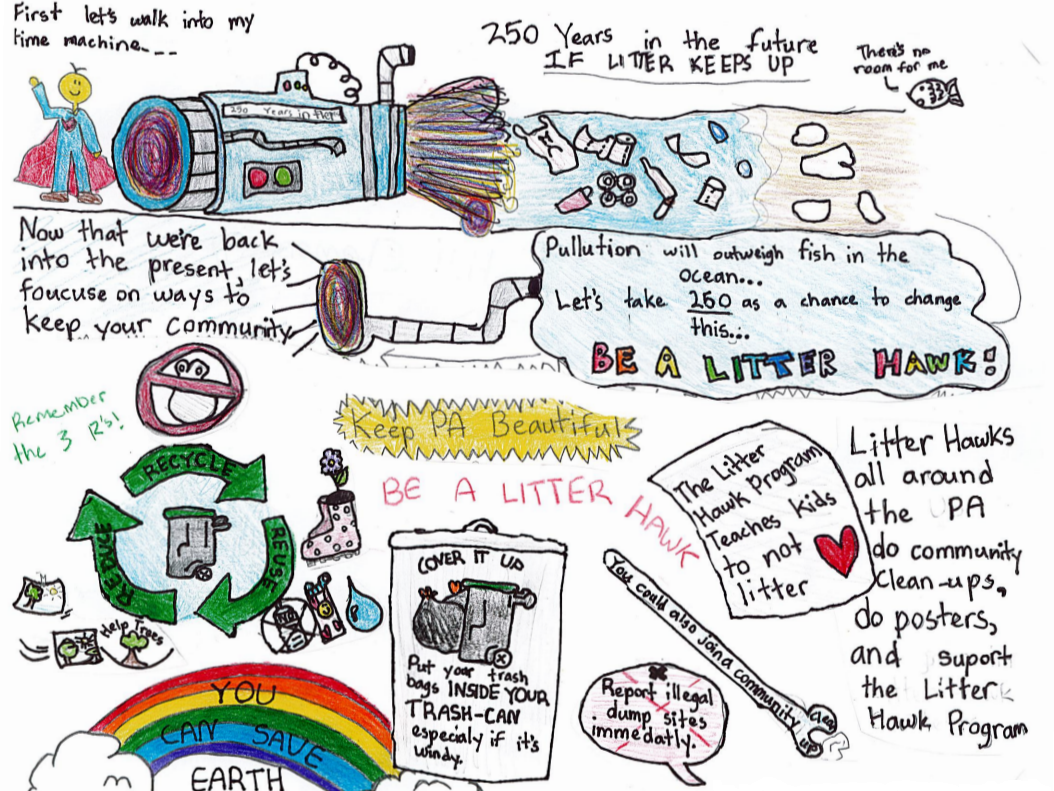 First let's walk into my
time machine...
250 Years in the future
IF LITTER KEEPS UP
There's no
room for me
250 Years in the
Now that we're back
into the present, let's
foucuse on ways to
keep your community
Pullution will outweigh fish in the
ocean...
Let's take 250 as a chance to change
this...
BE A LITTER HAWK!
Remember
the 3 R's!
RECYCLE
REDUCE
REUSE
Help Trees
Keep PA Beautiful
BE A LITTER HAWK
COVER IT UP
Put your trash
bags INSIDE YOUR
TRASH-CAN
especialy if it's
windy.
The Litter
Hawk Program
Teaches kids
to not
litter
You could also join a community
clean
up
Report illegal
dump sites
immedatly.
Litter Hawks
all around
the PA
do community
clean-ups,
do posters,
and suport
the Litter
Hawk Program
YOU
CAN SAVE
EARTH